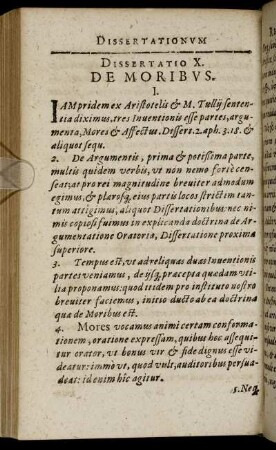 DISSERTATIONVM
DISSERTATIO X.
DE MORIBVS.
I.
IAM pridem ex Aristotelis & M. Tullij senten-
tia diximus, tres Inuentionis esse partes, argu-
menta, Mores & Affectus. Dissert. 2. aph. 3. 18. &
aliquot sequ.
2. De Argumentis, prima & potissima parte,
multis quidem verbis, vt non nemo fortè cen-
seat; at pro rei magnitudine breuiter admodum
egimus, & plarosq, eius partis locos strictim tan-
tum attigimus, aliquot Dissertationibus: nec ni-
mis copiosi fuimus in explicanda doctrina de Ar-
gumentatione Oratoria, Dissertatione proxima
superiore.
3. Tempus est, vt ad reliquas duas Inuentionis
partes veniamus, de ijsq, præcepta quædam vti-
lia proponamus: quod itidem pro instituto nostro
breuiter faciemus, initio ducto ab ea doctrina
qua de Moribus est.
4. Mores vocamus animi certam conforma-
tionem, oratione expressam, quibus hoc assequi-
tur orator, vt bonus vir & fide dignus esse vi-
deatur: immò vt, quod vult, auditoribus persua-
deat: id enim hîc agitur.
5. Neq,